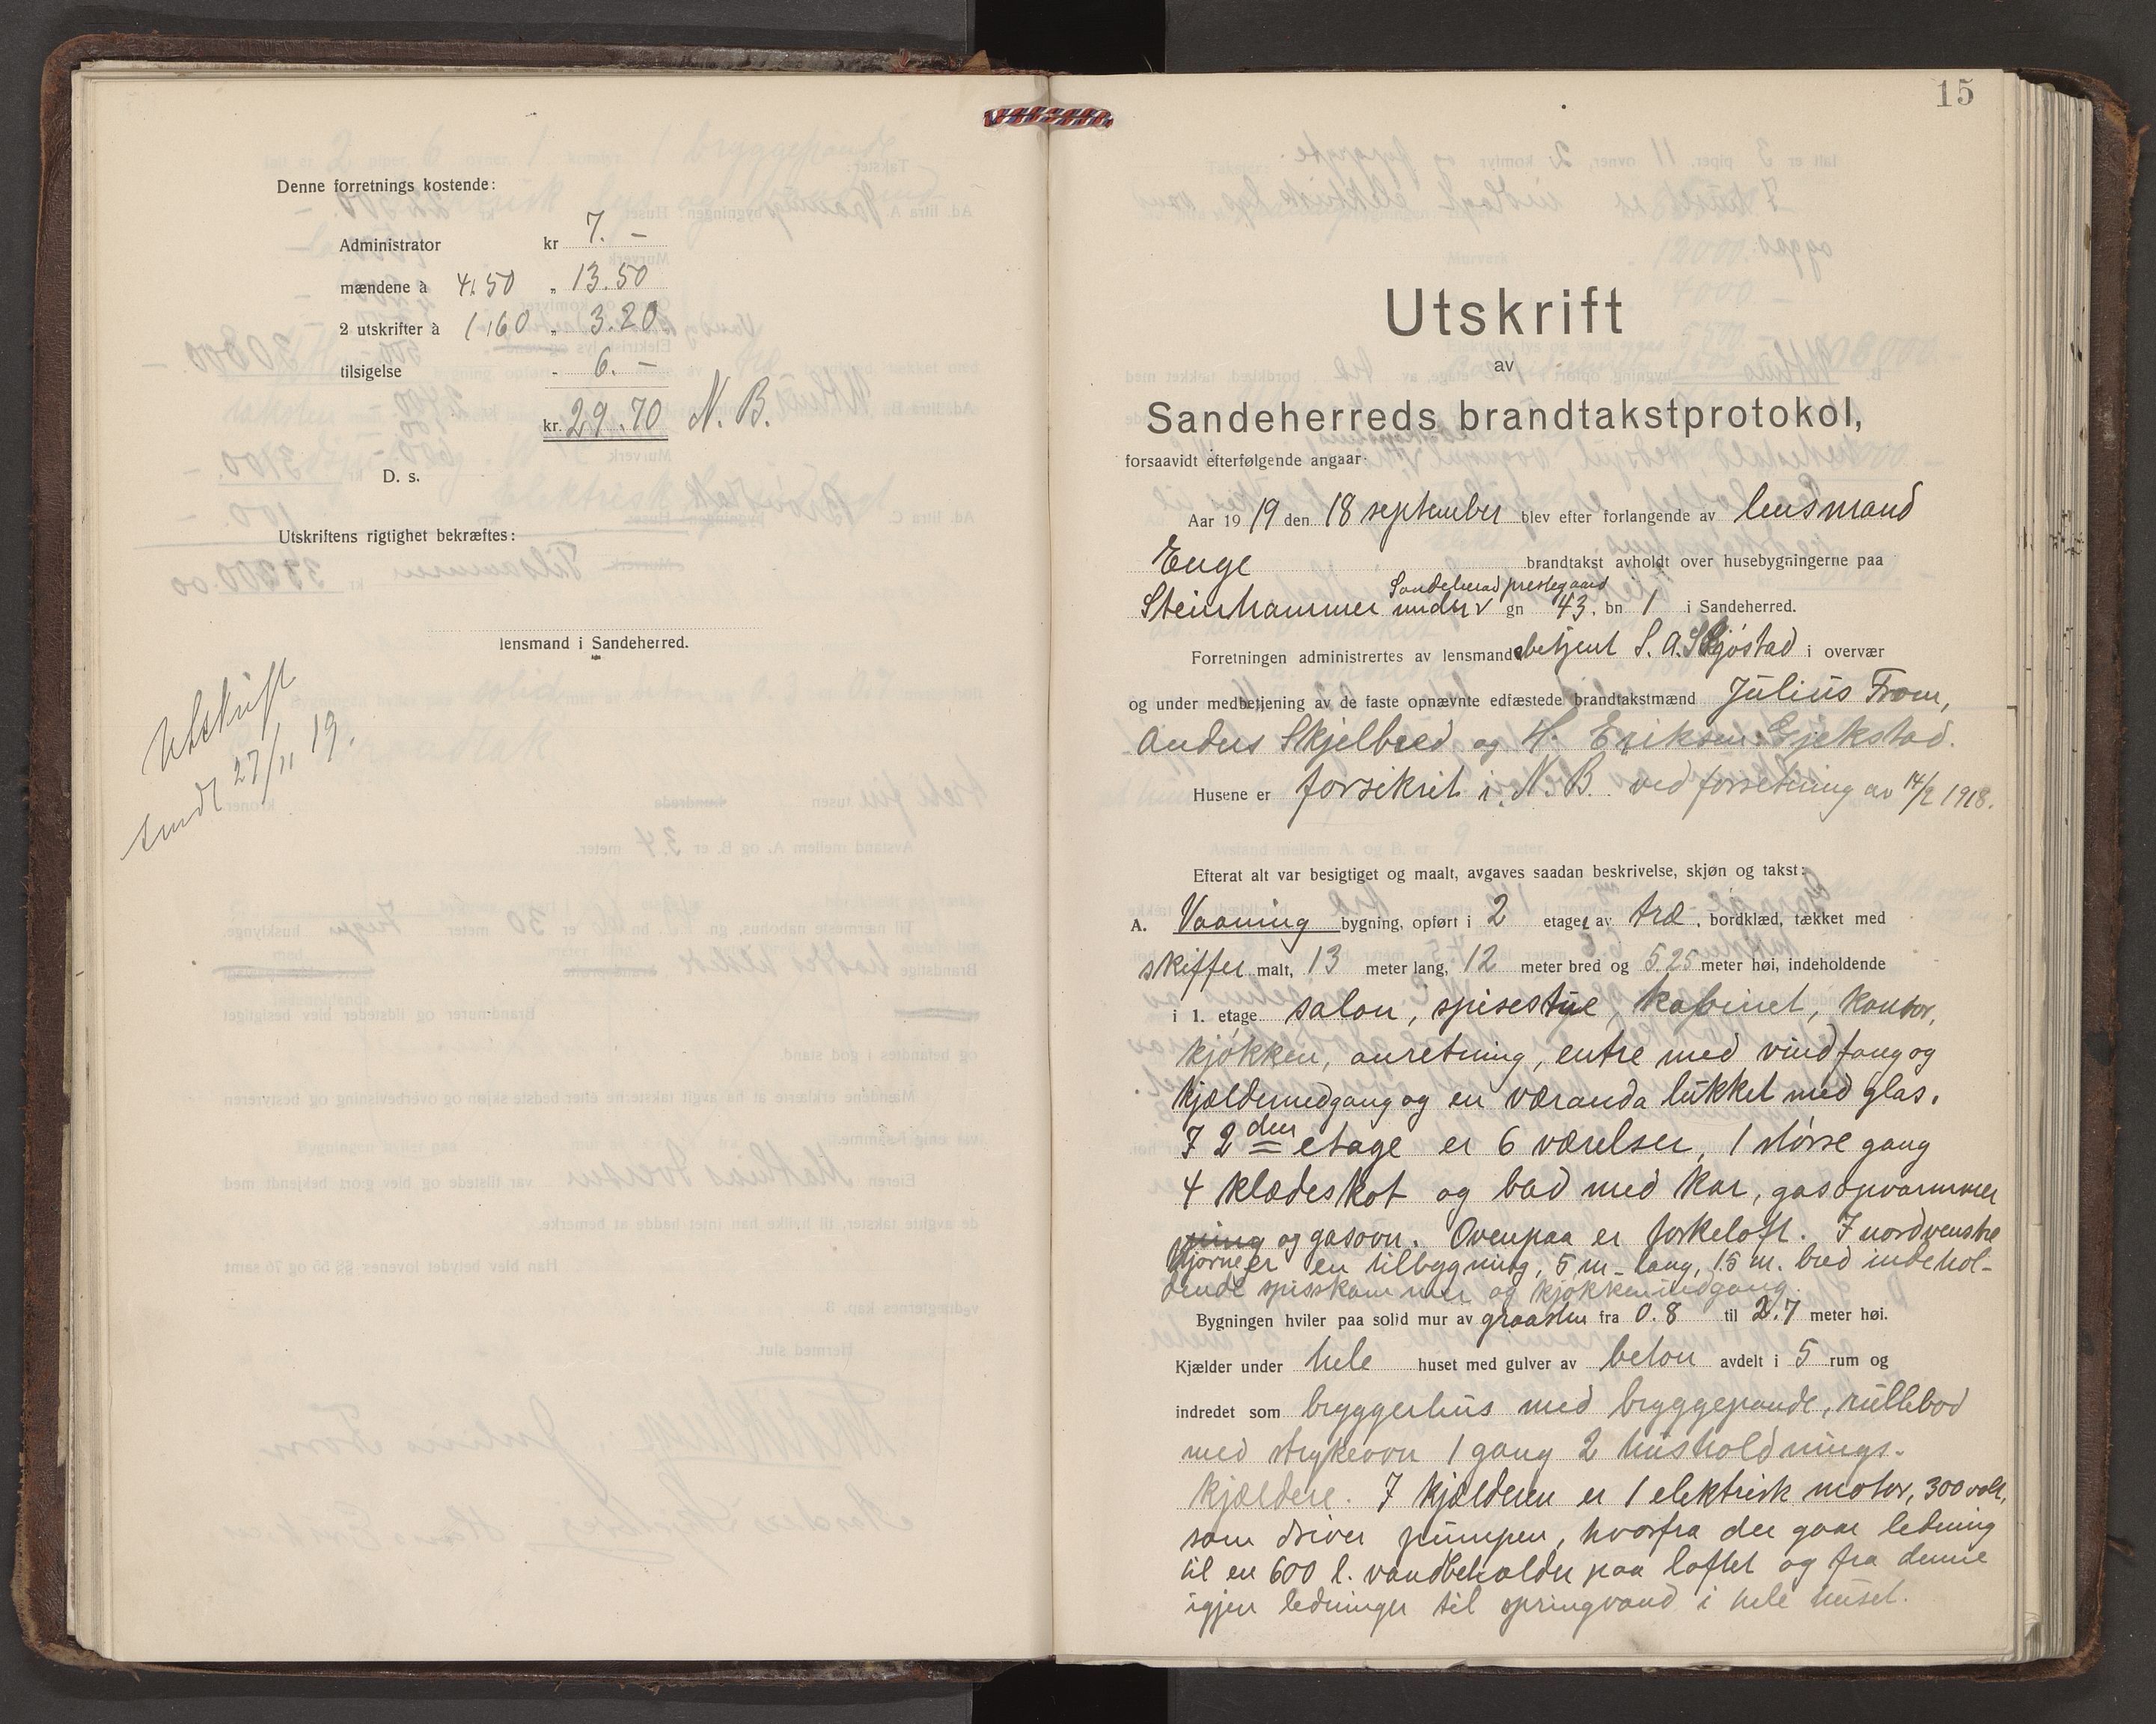 Denne forretnings kostende:
Administrator kr 7. –
mændene à 4.50 „ 13.50
2 utskrifter à 1.60 „ 3.20
tilsigelse - 6. –
kr. 29.70 N. B.
D. s.
Utskriftens rigtighet bekræftes:
lensmand i Sandeherred.
Utskrift
sendt 27/11 19.
15
Utskrift
av
Sandeherreds brandtakstprotokol,
forsaavidt efterfølgende angaar:
Aar 1919 den 18 september blev efter forlangende av lensmand
Enge brandtakst avholdt over husebygningerne paa
Sandeherad prestegaard
Steinhammer under v gn 43. bn 1 i Sandeherred.
Forretningen administrertes av lensmandsbetjent S. A. Skjøstad i overvær
og under medbetjening av de faste opnævnte edfæstede brandtakstmænd Julius From,
Anders Skjelbred og H. Eriksen Gjekstad.
Husene er forsikret i N. B. ved forretning av 14/2 1918.
Efterat alt var besigtiget og maalt, avgaves saadan beskrivelse, skjøn og takst:
A. Vaaning bygning, opført i 2 etager av træ, bordklæd, tækket med
skiffer malt, 13 meter lang, 12 meter bred og 5.25 meter høi, indeholdende
i 1. etage salon, spisestue, kabinet, kontor,
kjøkken, anretning, entre med vindfang og
kjældernedgang og en væranda lukket med glas.
I 2den etage er 6 værelser, 1 større gang
4 klædeskot og bad med kar, gasopvarmmer
og gasovn. Ovenpaa er tørkeloft. I nordvenstre
hjørne er en tilbygning, 5 m lang, 1.5 m. bred indehol-
dende spisskammer og kjøkkenindgang.
Bygningen hviler paa solid mur av graasten fra 0.8 til 2.7 meter høi.
Kjælder under hele huset med gulver av beton avdelt i 5 rum og
indredet som bryggerhus med bryggepande, rullebod
med strykeovn 1 gang 2 husholdnings-
kjældere. I kjælderen er 1 elektrisk motor, 300 volt,
som driver pumpen, hvorfra der gaar ledning
til en 600 l. vandbeholder paa loftet og fra denne
igjen ledninger til springvand i hele huset.